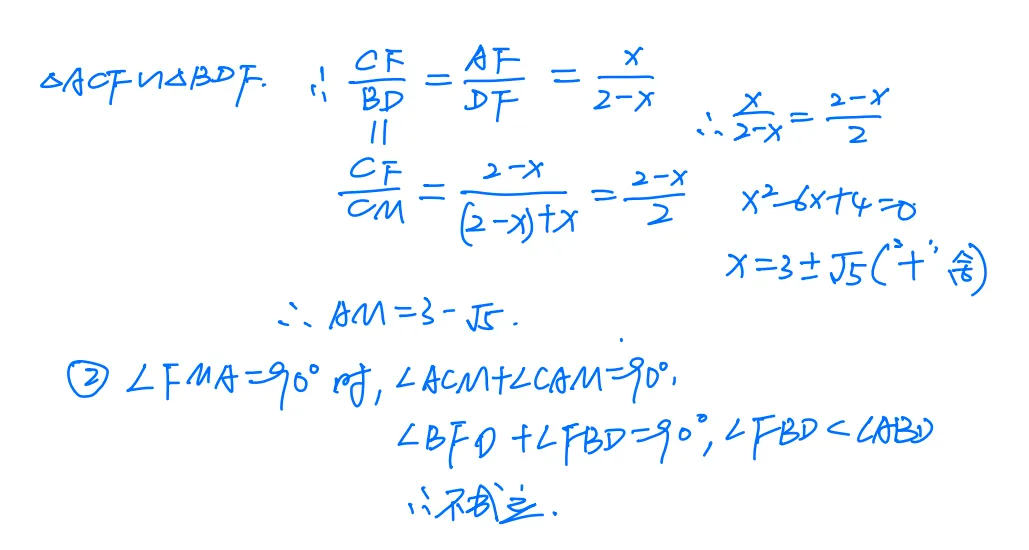 △ACF∽△BDF. ∴ CF/BD = AF/DF = x/(2-x)
∴ x/(2-x) = (2-x)/2
|| CF/CM = (2-x)/((2-x)+x) = (2-x)/2
x²-6x+4=0
x=3±√5("+"舍)
∴ AM=3-√5.
② ∠FMA=90°时, ∠ACM+∠CAM=90°,
∠BFD+∠FBD=90°, ∠FBD<∠ABD
∴不成立.